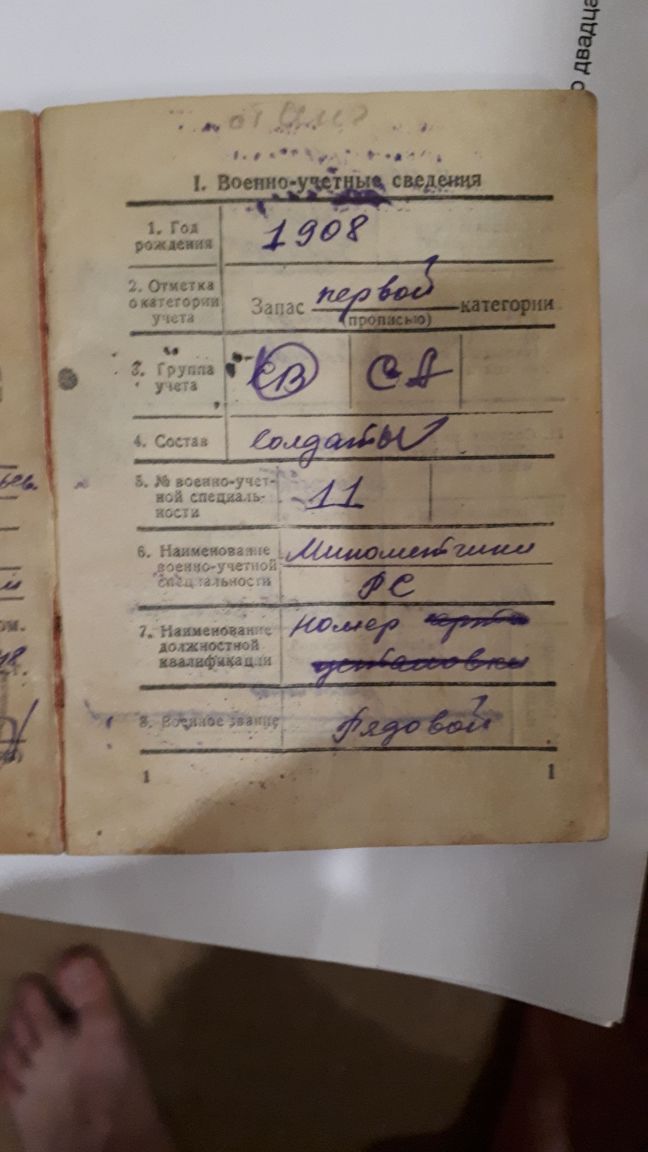 о двадца
I. Военно-учетные сведения
1. Год
рождения
1908
2. Отметка
о категории
учета
Запас первой категории
(прописью)
3. Группа
учета
СВ СА
4. Состав
Солдаты
5. № военно-учет-
ной специаль-
ности
11
6. Наименование
военно-учетной
специальности
Минометчики
РС
7. Наименование
должностной
квалификации
номер
установки
8. Военное звание
Рядовой
1
1
ом.